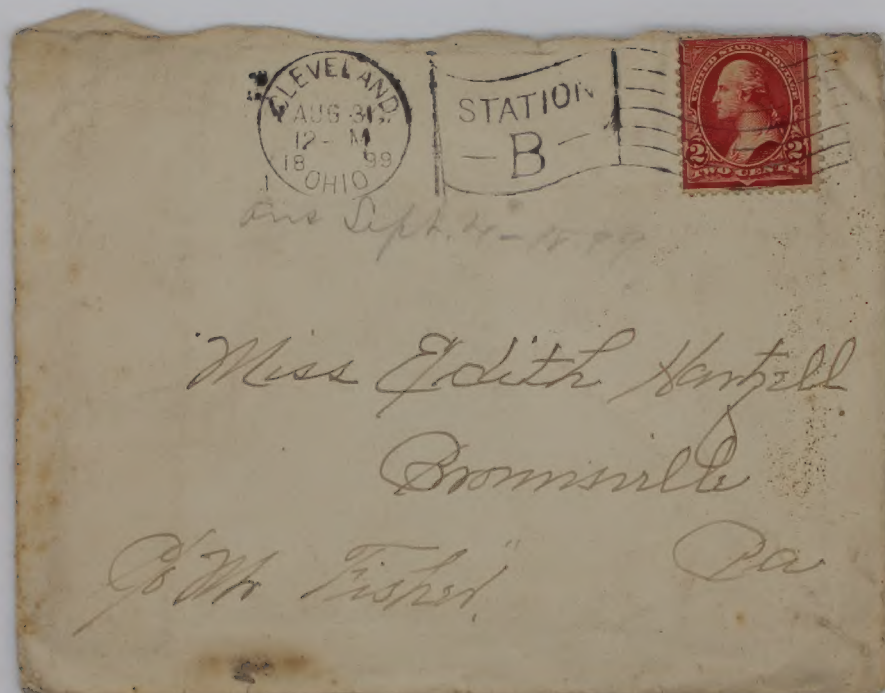 CLEVELAND
AUG 31
12 - M
18 99
OHIO
STATION
- B -
UNITED STATES POSTAGE
2 2
TWO CENTS
Ans Sept. 4 - 1899
Miss Edith Hartzell
Brownsville
Pa
c/o Mr Fisher